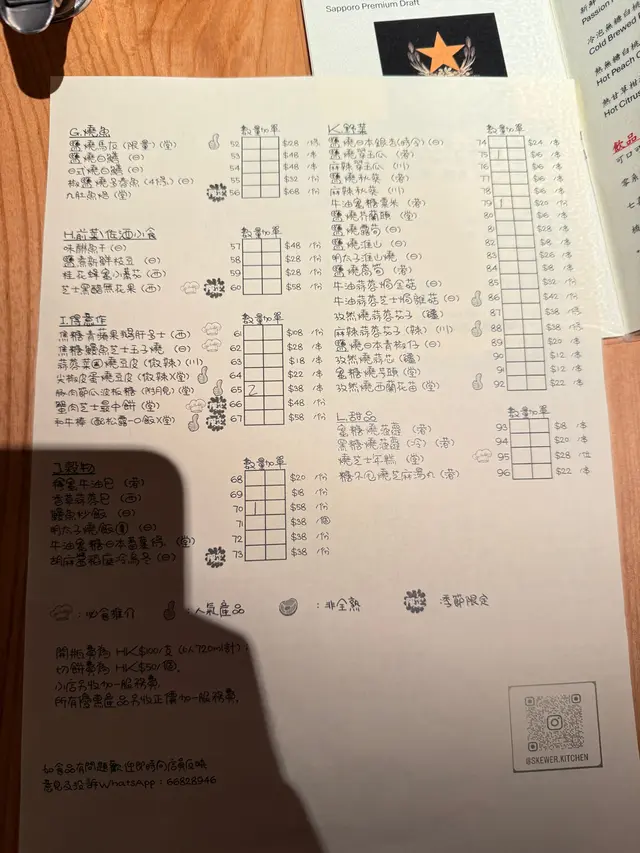 Sapporo Premium Draft
Passion
Cold Brewed
Hot Peach
Hot Citrus
飲品
G.燒魚
數量加單
鹽燒馬友 (限量) (堂) 52 $28 /串
鹽燒白鱔 (日) 53 $48 /本
日式燒白鱔 (日) 54 $48 /本
椒鹽燒多春魚 (4條) (日) 55 $32 /份
九肚魚 (堂) 56 $68 /份
H.前菜/佐酒小食
數量加單
味醂魚干 (日) 57 $48 /份
鹽煮新鮮枝豆 (日) 58 $28 /份
桂花蜂蜜小番茄 (西) 59 $28 /份
芝士黑醋無花果 (西) 60 $58 /份
I.得意作
數量加單
焦糖青蘋果鵝肝多士 (西) 61 /份
焦糖鰻魚芝士玉子燒 (日) 62 $28 /份
蒜蓉菜燒豆皮 (做辣) (川) 63 $18 /本
尖椒皮蛋燒豆皮 (做辣) (堂) 64 $22 /本
豚肉節瓜波板糖 (堂) 65 2 $38 /本
蟹肉芝士最中餅 (堂) 66 $48 /份
和牛棒 (配松露) (堂) 67 $58 /份
J.穀物
數量加單
蜂蜜牛油包 (港) 68 $20 /份
香草蒜蓉包 (西) 69 $8 /份
鰻魚炒飯 (日) 70 1 $58 /份
明太子燒飯團 (日) 71 $38 /個
牛油蜜糖日本番薯 (堂) 72 $38 /份
胡麻蟹稻庭冷烏冬 (日) 73 $38 /份
K.野菜
數量加單
鹽燒日本銀杏(時令) (日) 74 $24 /本
鹽燒翠玉瓜 (港) 75 1 $6 /本
麻辣翠玉瓜 (川) 76 $6 /本
鹽燒秋葵 (港) 77 $6 /本
麻辣秋葵 (川) 78 $6 /本
牛油蜜糖粟米 (港) 79 1 $20 /份
鹽燒芥蘭頭 (堂) 80 $6 /本
鹽燒露筍 (日) 81 /本
鹽燒淮山 (日) 82 $8 /本
明太子淮山燒 (日) 83 /本
鹽燒萵筍 (港) 84 $8 /本
牛油蒜蓉焗金菇 (日) 85 $32 /份
牛油蒜蓉芝士焗雜菇 (日) 86 $42 /份
孜然燒蒜蓉茄子 (港) 87 $38 /本
麻辣蒜蓉茄子 (辣) (川) 88 $38 /本
鹽燒日本青椒仔 (日) 89 $20 /本
孜然燒蒜芯 (疆) 90 $12 /本
蜜糖燒馬蹄 (堂) 91 $12 /本
孜然燒西蘭花苗 (堂) 92 $22 /本
L.甜品
數量加單
蜜糖燒菠蘿 (港) 93 $8 /本
黑糖燒菠蘿 (冷) (港) 94 $20 /本
燒芝士年糕 (堂) 95 $28 /位
糖不甩燒芝麻湯丸 (港) 96 $22 /本
：必食推介 ：人氣產品 ：非全熟 ：季節限定
開瓶費為 HK$100/支 (以720ml計)；
切餅費為 HK$50/個。
小店另收加一服務費。
所有優惠產品另收正價加一服務費。
如食品有問題歡迎即時向店員反映
意見及投訴WhatsApp：66828946
@SKEWER.KITCHEN